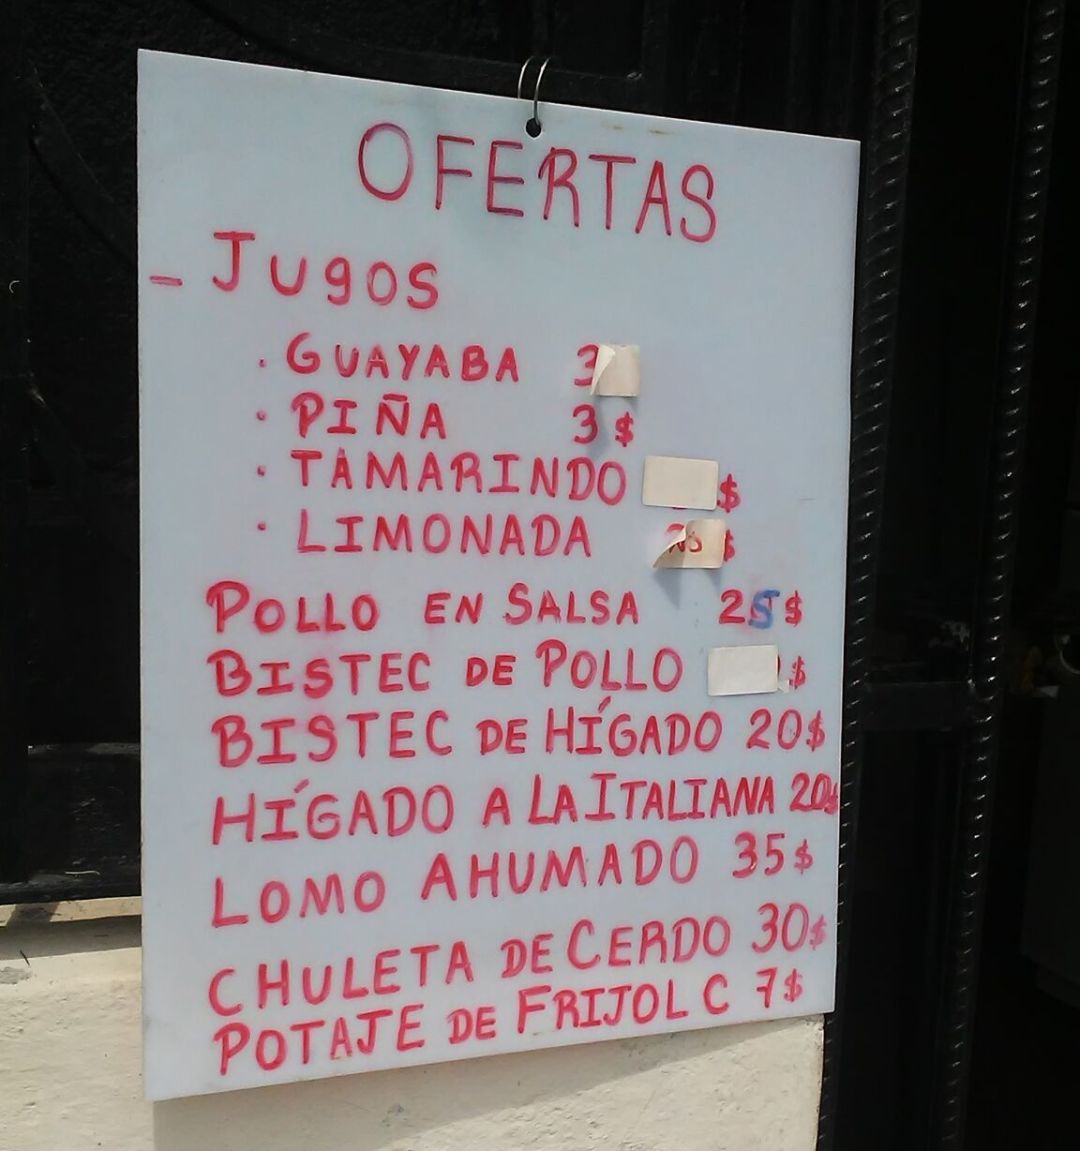 OFERTAS
- Jugos
· GUAYABA 3
· PIÑA 3 $
· TAMARINDO $
· LIMONADA $
POLLO EN SALSA 25 $
BISTEC DE POLLO $
BISTEC DE HÍGADO 20$
HÍGADO A LA ITALIANA 20$
LOMO AHUMADO 35$
CHULETA DE CERDO 30$
POTAJE DE FRIJOL C 7$